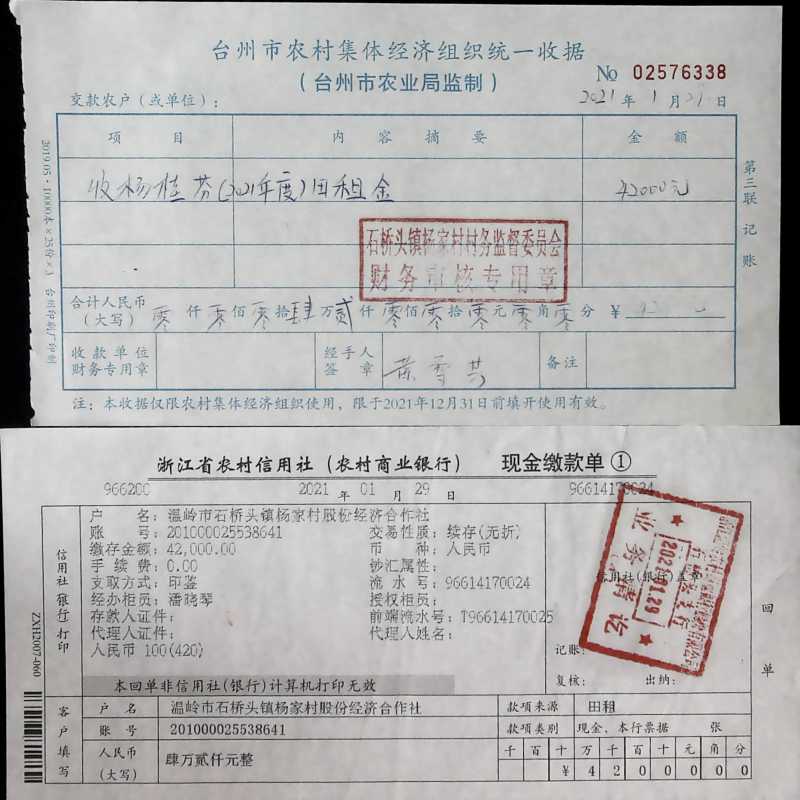 台州市农村集体经济组织统一收据
(台州市农业局监制)
No 02576338
交款农户(或单位):
2021年1月29日
项目 内容摘要 金额
收杨桂芬(2021年度)田租金 42000元
石桥头镇杨家村村务监督委员会
财务审核专用章
合计人民币(大写) 零仟零佰零拾肆万贰仟零佰零拾零元零角零分 ¥
收款单位财务专用章 经手人签章 备注
注:本收据仅限农村集体经济组织使用,限于2021年12月31日前填开使用有效。
第三联 记账
2019.05·10000本×25份×3 台州印刷厂印制
浙江省农村信用社(农村商业银行) 现金缴款单①
966200 2021年01月29日 96614170024
信用社(银行)打印
户名:温岭市石桥头镇杨家村股份经济合作社
账号:201000025538641 交易性质:续存(无折)
缴存金额:42,000.00 币种:人民币
手续费:0.00 钞汇属性:
支取方式:印鉴 流水号:96614170024
经办柜员:潘晓琴 授权柜员:
存款人证件: 前端流水号:T96614170025
代理人证件: 代理人姓名:
人民币 100(420)
本回单非信用社(银行)计算机打印无效
信用社(银行)盖章
2021.1.29
业务清讫
记账:
复核: 出纳:
回单
ZXH2007-060
客户填写
户名 温岭市石桥头镇杨家村股份经济合作社 款项来源 田租
账号 201000025538641 款项类别 现金、本行票据 张
人民币(大写) 肆万贰仟元整 千百十万千百十元角分
¥4200000